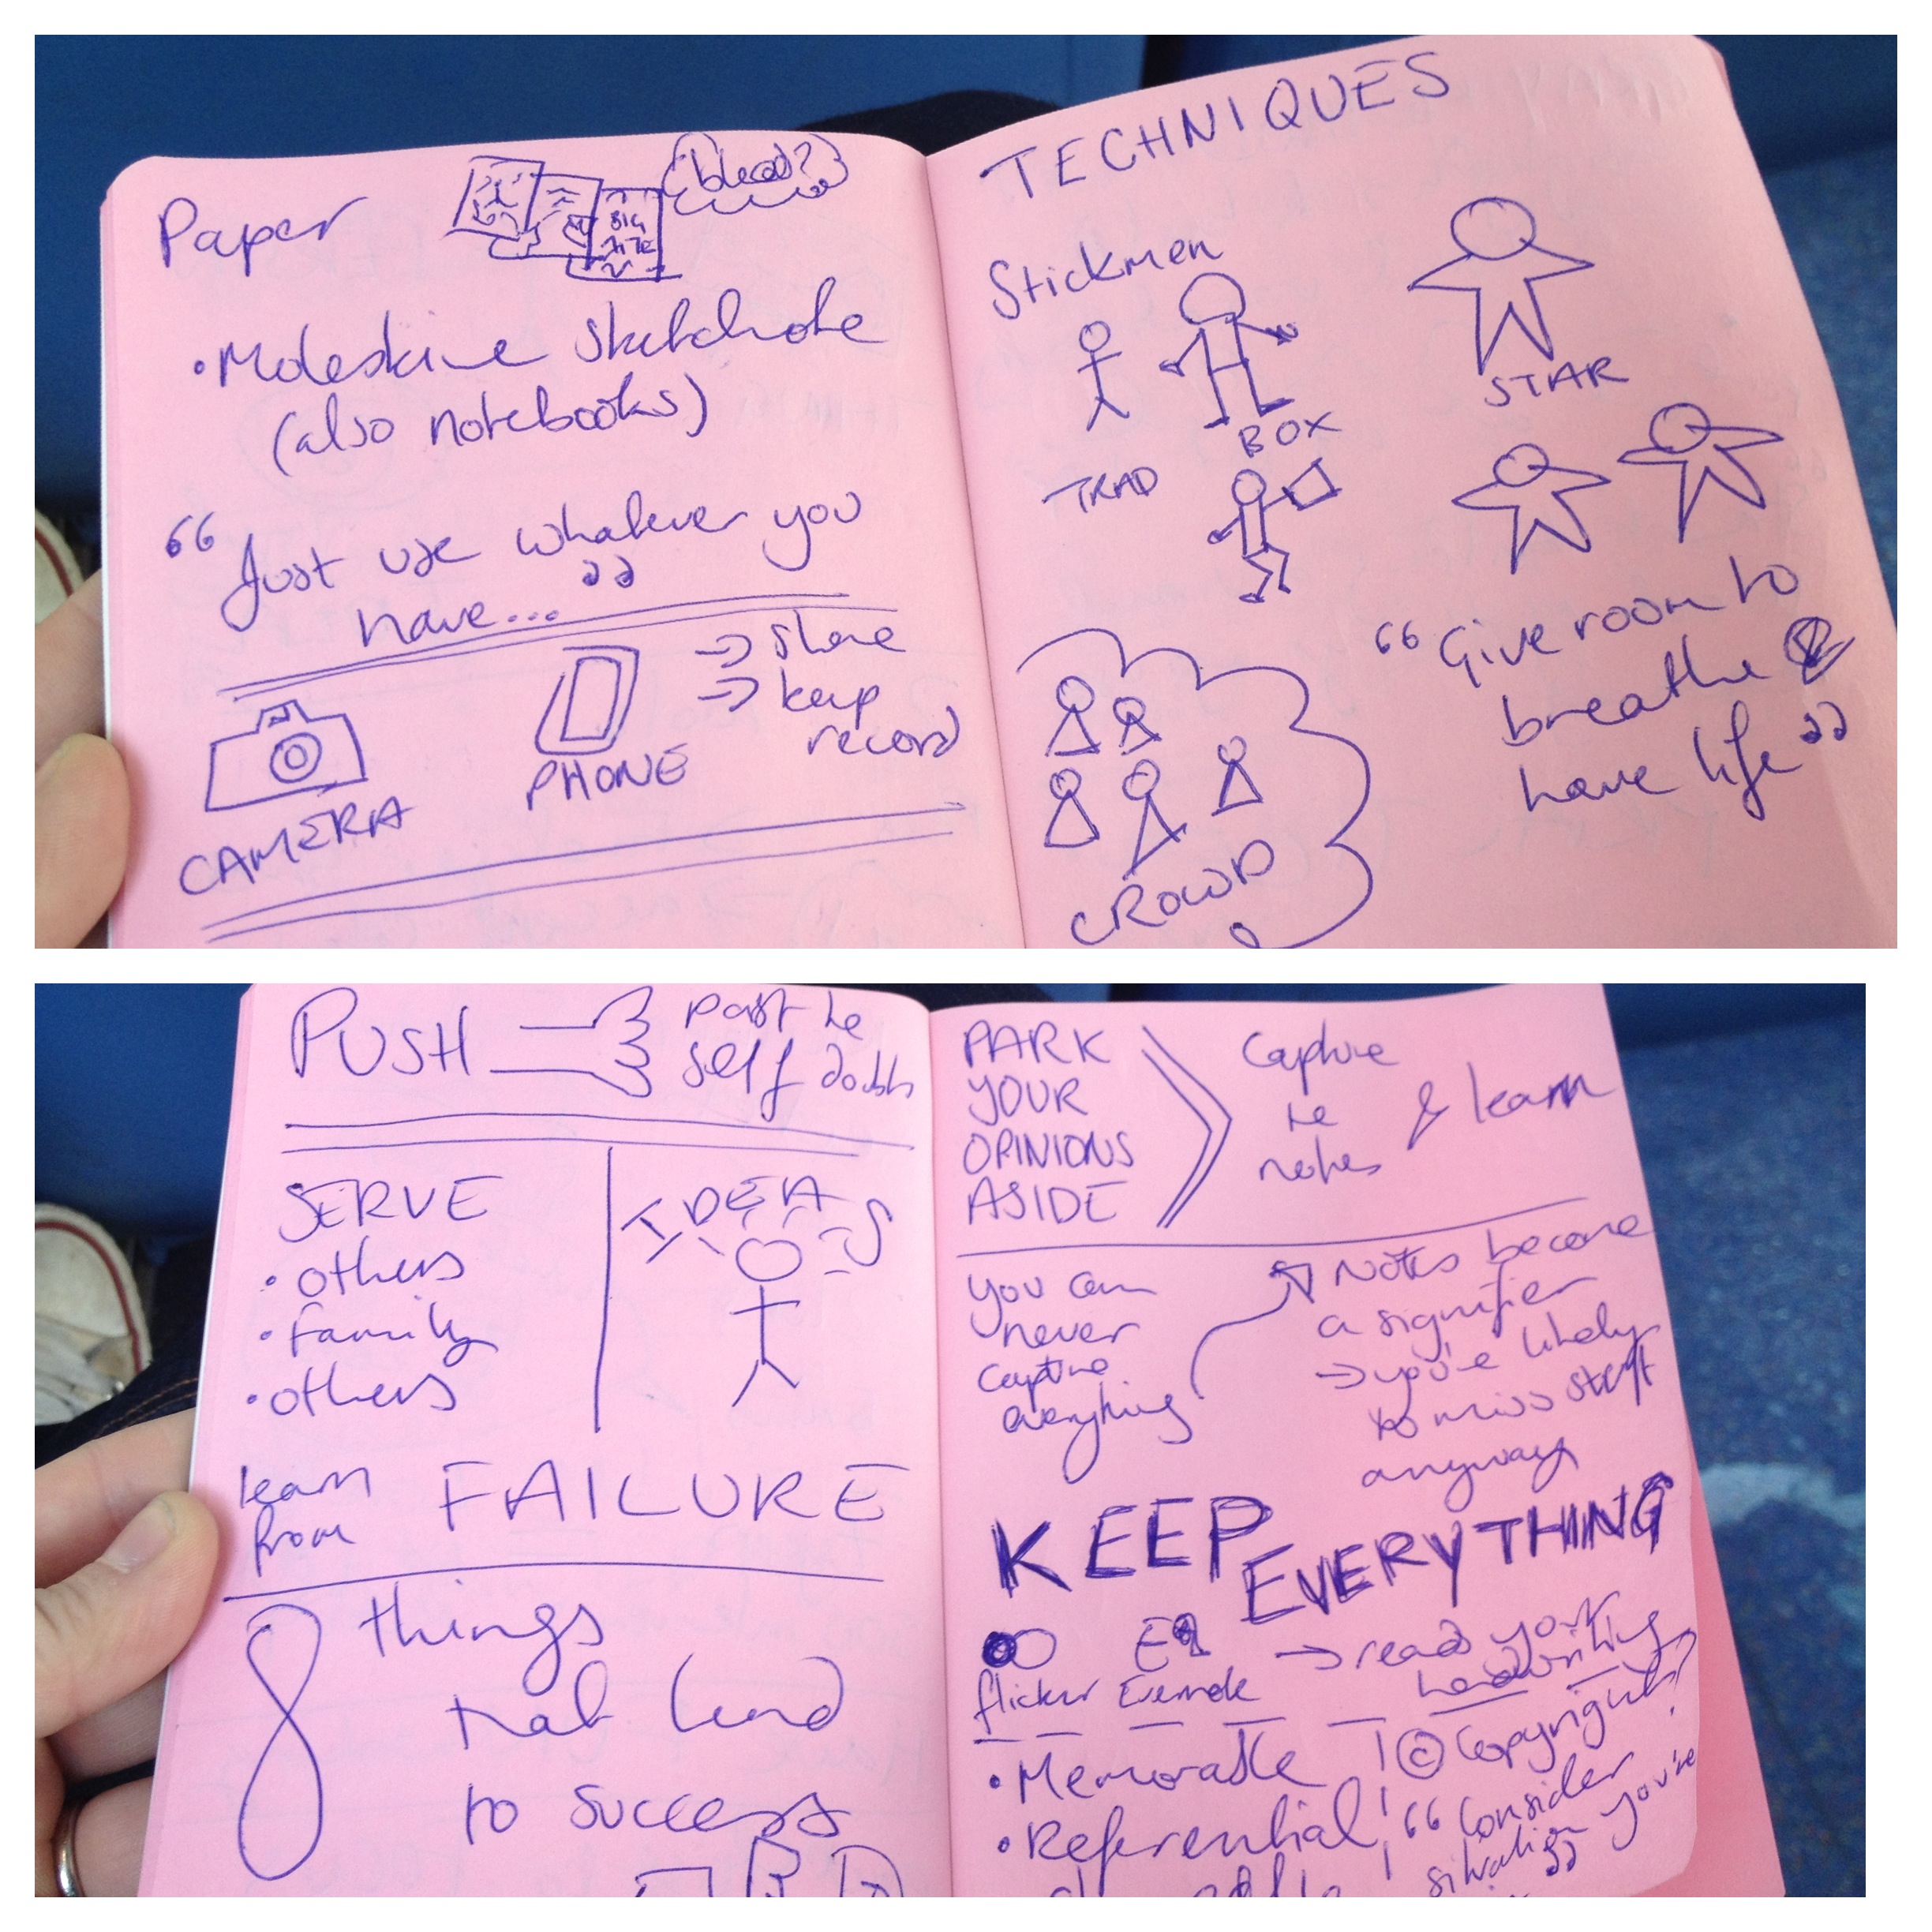 Paper
bleed?
BIG
TITLE
• Moleskine Sketchnote
(also notebooks)
“Just use whatever you
have...”
CAMERA
PHONE
→ share
→ keep
record
TECHNIQUES
Stickmen
TRAD
BOX
STAR
CROWD
“Give room to
breathe &
have life”
PUSH
past he
self doubts
SERVE
• others
• family
• others
IDEAS
learn
from
FAILURE
8 things
that lead
to success
PARK
YOUR
OPINIONS
ASIDE
Capture
he
notes
& learn
you can
never
capture
everything
Notes become
a signifier
→ you're likely
to miss stuff
anyway
KEEP EVERYTHING
flicker Evernote
→ reads your
handwriting
• Memorable
• Referential
© Copyright?
“Consider
situation you're